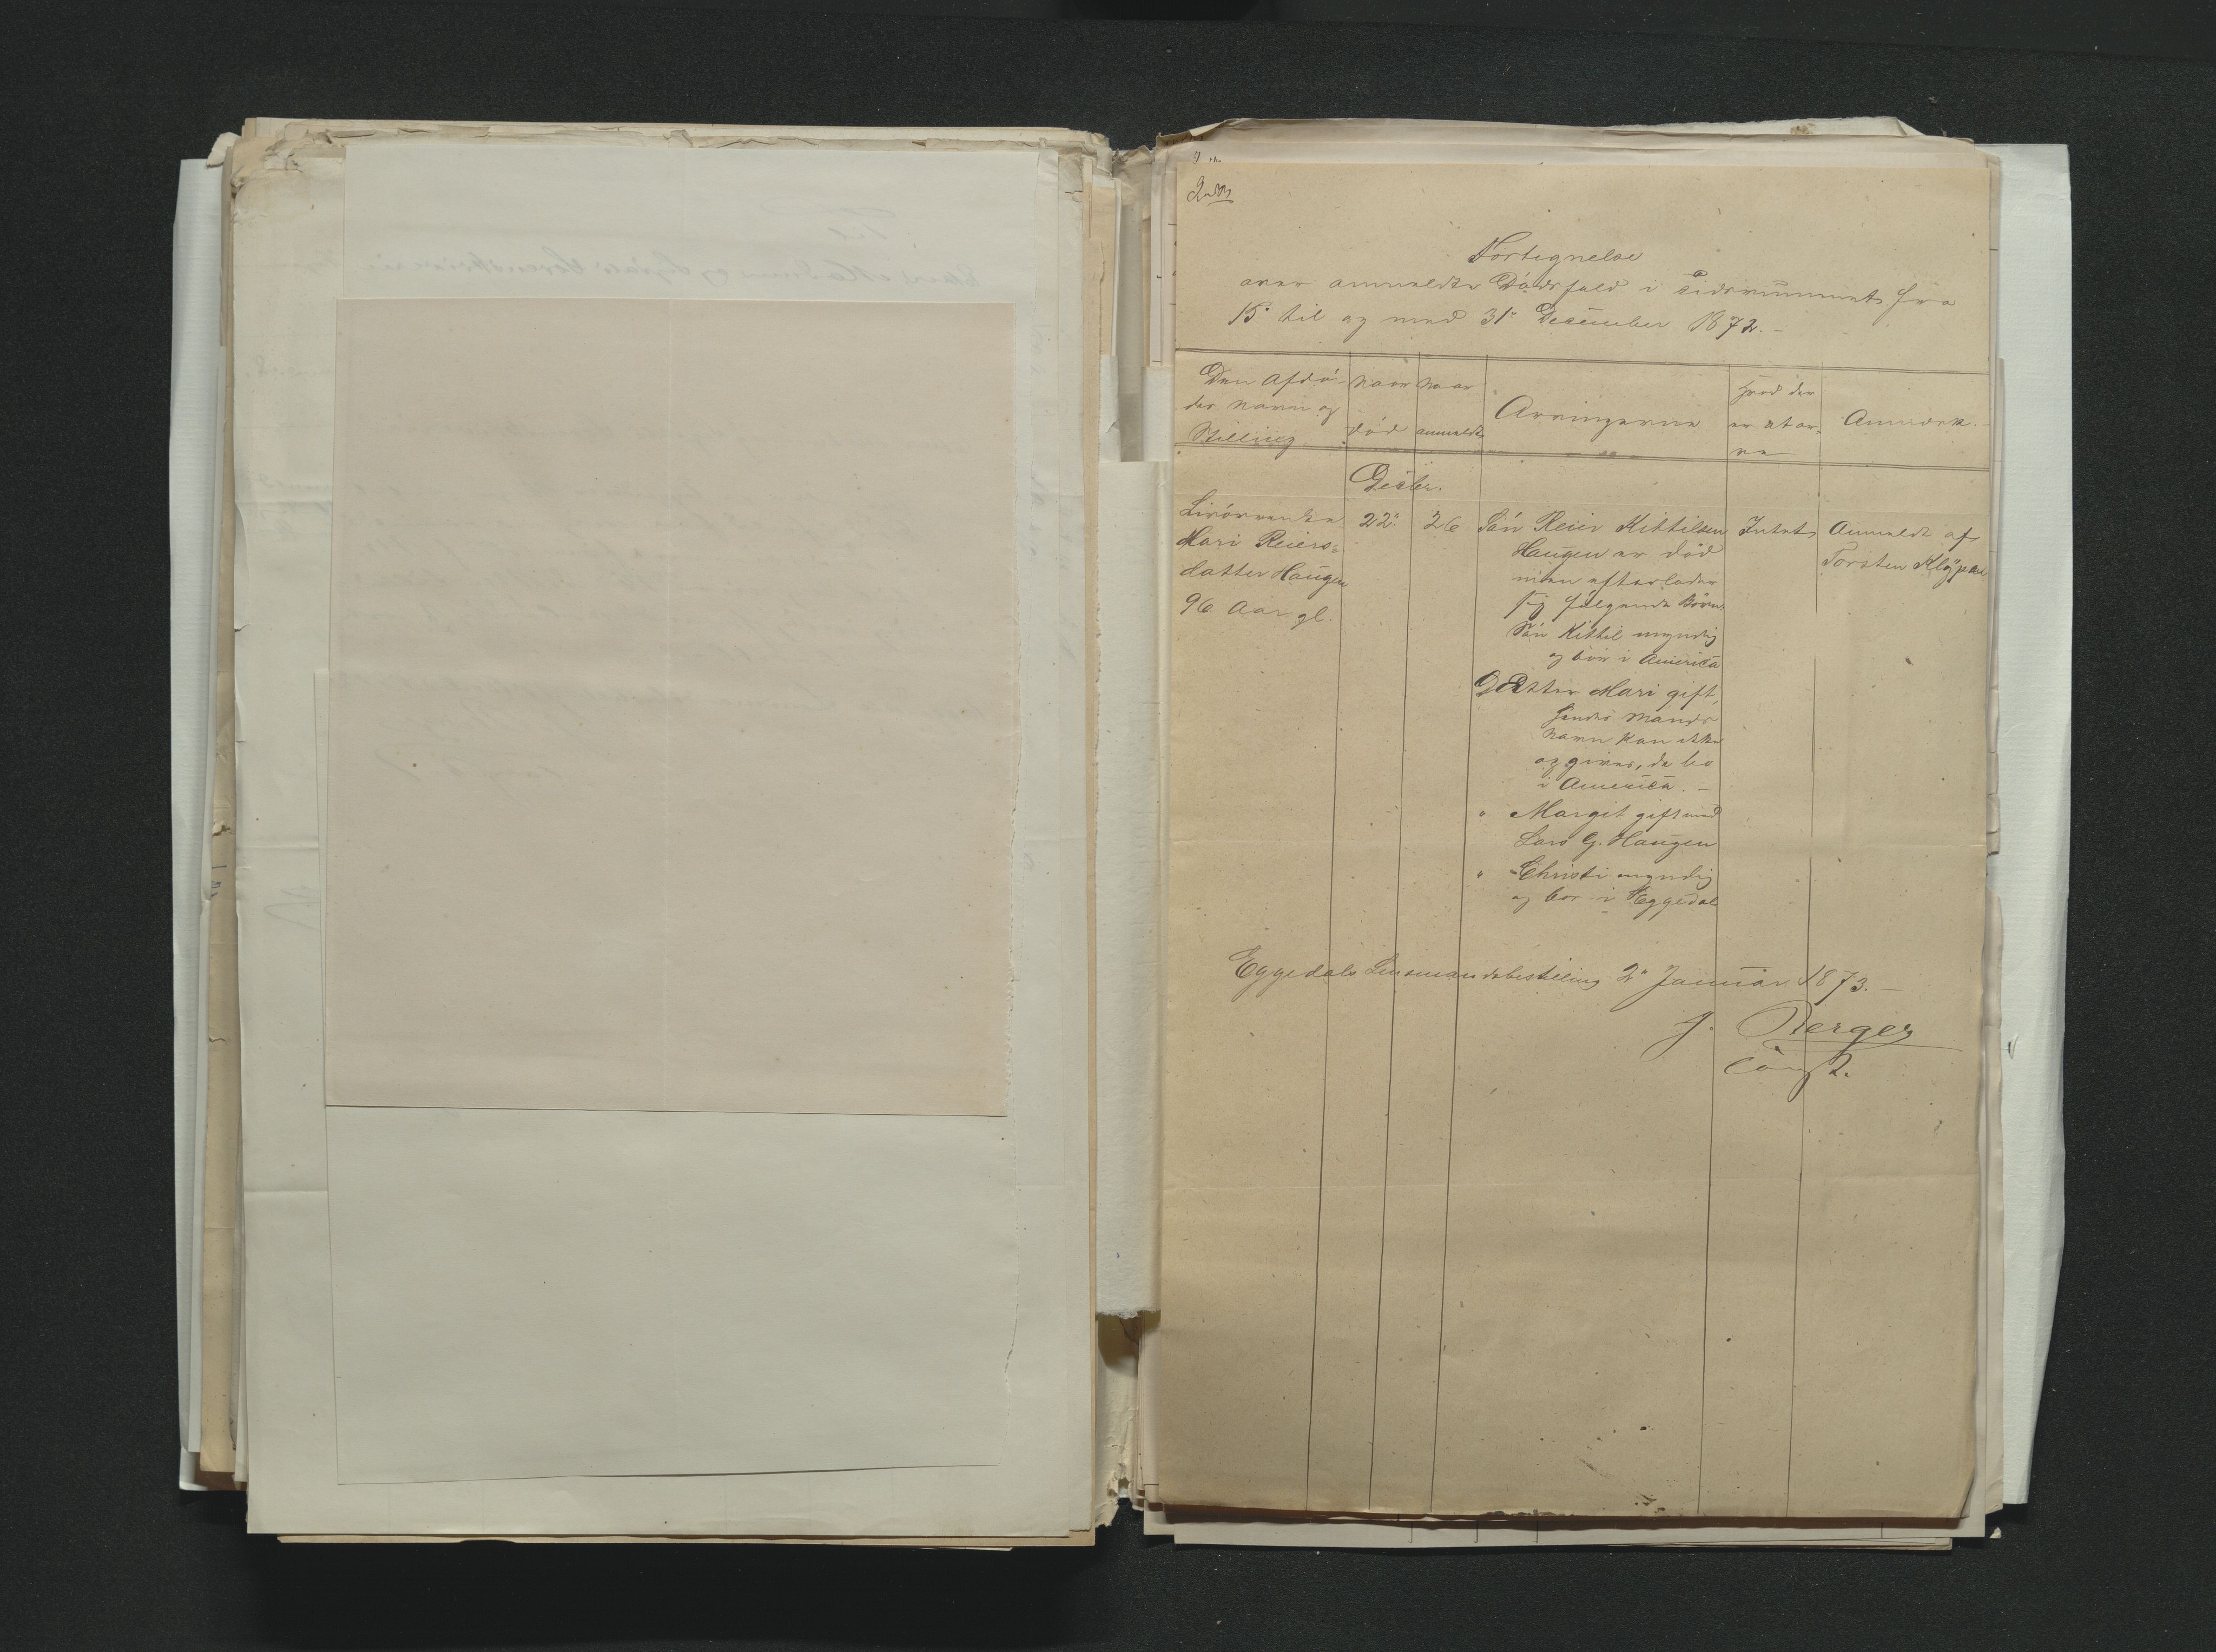 Fortegnelse
over anmeldte Dödsfald i Tidsrummet fra
15de til og med 31te December 1872. -
Den afdö-
des Navn og
Stilling
Naar
död
Naar
anmeldt
Arvingerne
Hvad der
er at ar-
ve
Anmærk. -
Decbr.
Livörenke
Mari Reiers-
datter Haugen
96 Aar gl.
22de
26
Sön Reier Kittilsen
Haugen er död
men efterlader
sig fölgende Börn:
Sön Kittil myndig
og bor i America
Datter Mari gift,
hendes Mands
Navn kan ikke
opgives, de bo
i America. -
" Margit gift med
Lars G. Haugen
" Christi myndig
og bor i Eggedal
Intet
Anmeldt af
Torsten Kløpne
Eggedals Lensmandsbestilling 2den Januar 1873. -
J. Berger
Const.